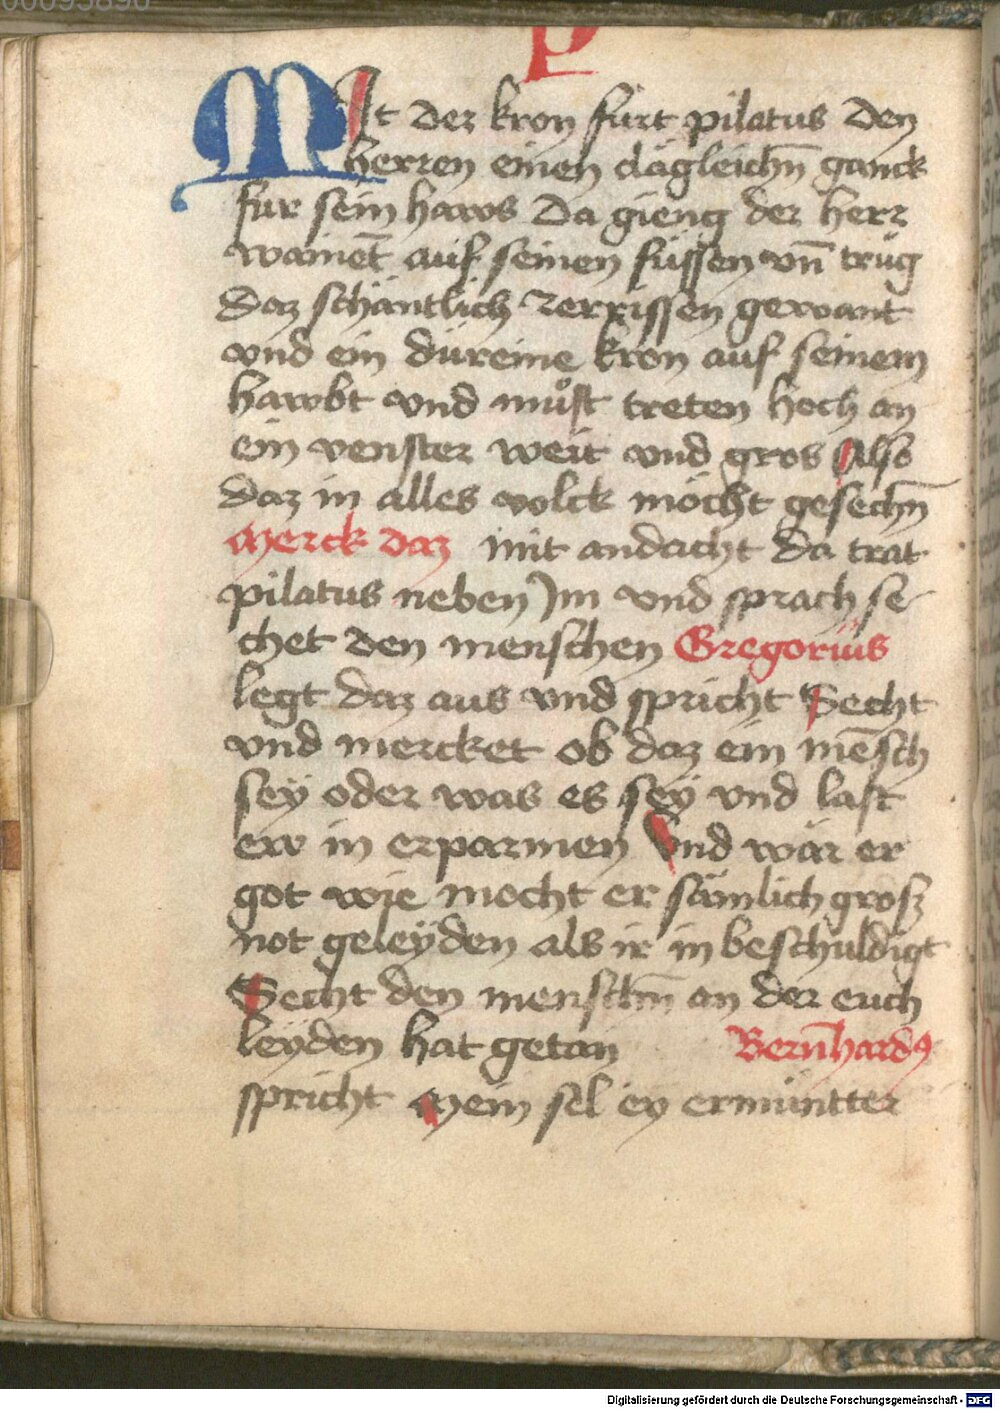 00095890
P
MIt der kron furt pilatus den
herren einen clägleichn̄ ganck
fur sein haws Da gieng der herr
wainēt auf seinen füssen vn̄ trüg
daz schäntlich zerrissen gewant
vnd ein düreine kron auf seinem
hawbt vnd muͦst treten hoch an
ein venster weit vnd gros Also
daz in alles volck möcht gesechn̄
Merck daz mit andacht da trat
pilatus neben Im vnd sprach se-
chet den menschen Gregorius
legt daz aus vnd spricht Secht
vnd mercket ob daz ein mēsch
sey oder was es sey vnd last
ew in erparmen Vnd wär er
got wie mocht er sämlich grosz
not geleyden als ir in beschuldigt
Secht den menschn̄ an der euch
leyden hat getan Bern̄hardꝯ
spricht Mein sel ey ermüntter
Digitalisierung gefördert durch die Deutsche Forschungsgemeinschaft - DFG